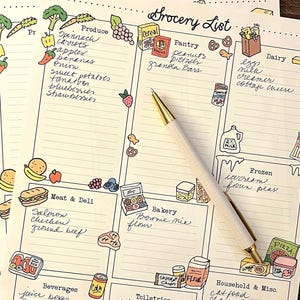 Grocery List
Produce
Spinach
carrots
apples
bananas
onion
sweet potatoes
tomatoes
blueberries
strawberries
Cereal
Pantry
peanuts
pretzels
granola bars
Dairy
eggs
milk
creamer
cottage cheese
Frozen
ice cream
frozen peas
Meat & Deli
Salmon
chicken
ground beef
Bakery
Brownie Mix
flour
Beverages
juice boxes
Toiletries
Household & Misc.
cat food